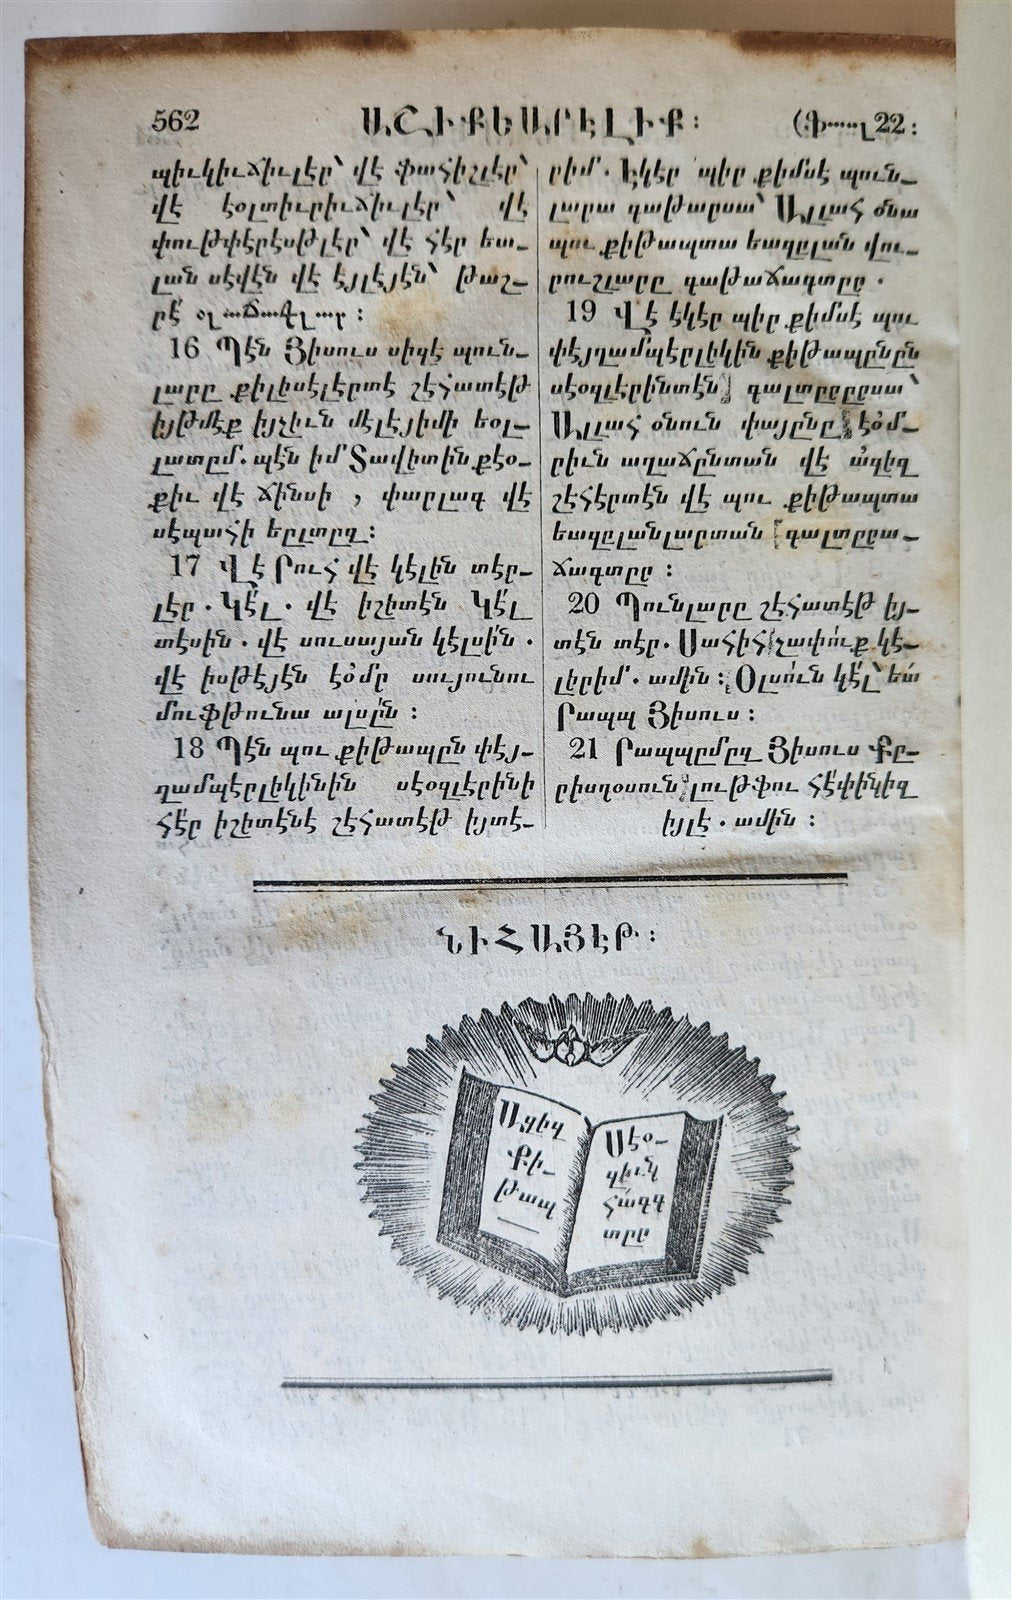 562
ԱՇԻՔԵԱՐԵԼԻՔ։
(Ֆ....լ 22։
պիւկիւճիւլէր՝ վէ ֆահիշլէր՝
վէ էօլտիւրիւճիւլէր՝ վէ
փութփէրէսթլէր՝ վէ հէր եա-
լան սէվէն վէ էյլէյէն՝ թաշ-
րը՛
16 Պէն Յիսուս սիզէ պուն-
լարը քիլիսէլէրտէ շէհատէթ
իյթմէք իչիւն մէլէյիմի եօլ-
լատըմ. պէն իմ՛ Տավիտին քէօ-
քիւ վէ ճինսի , փարլագ վէ
սէպահի եըլտըզ։
17 Վէ Րուհ վէ կէլին տէր-
լէր . Կէ՛լ . վէ իշիտէն Կէ՛լ
տէսին . վէ սուսայան կէլսի՛ն .
վէ իսթէյէն էօմր սույունու
մուֆթունա ալսը՛ն ։
18 Պէն պու քիթապըն փէյ-
ղամպէրլիկինին սէօզլէրինի
հէ՛ր իշիտէնէ շէհատէթ իյտէ-
րիմ . Էկէր պիր քիմսէ պուն-
լարա գաթարսա՝ Ալլահ օնա
պու քիթապտա եազըլան վու-
րուշլարը գաթաճագտըր .
19 Վէ էկէր պիր քիմսէ պու
փէյղամպէրլիկին քիթապընըն
սէօզլէրինտէն գալտըրըրսա՝
Ալլահ օնուն փայընը էօմ-
րիւն աղաճընտան վէ ազիզ
շէհէրտէն վէ պու քիթապտա
եազըլանլարտան գալտըրա-
ճագտըր ։
20 Պունլարը շէհատէթ իյ-
տէն տէր. Սահիհ չապուք կէ-
լերիմ . ամին ։ Օլսո՛ւն կէ՛լ՝ եա
Րապպ Յիսուս ։
21 Րապպըմըզ Յիսուս Քը-
րիսդօսուն լութֆու հէփինիզ
իլէ . ամին ։
ՆԻՀԱՅԷԹ։
Ազիզ
Քի-
թապ
Սէօ-
զիւն
հագգ
տըր